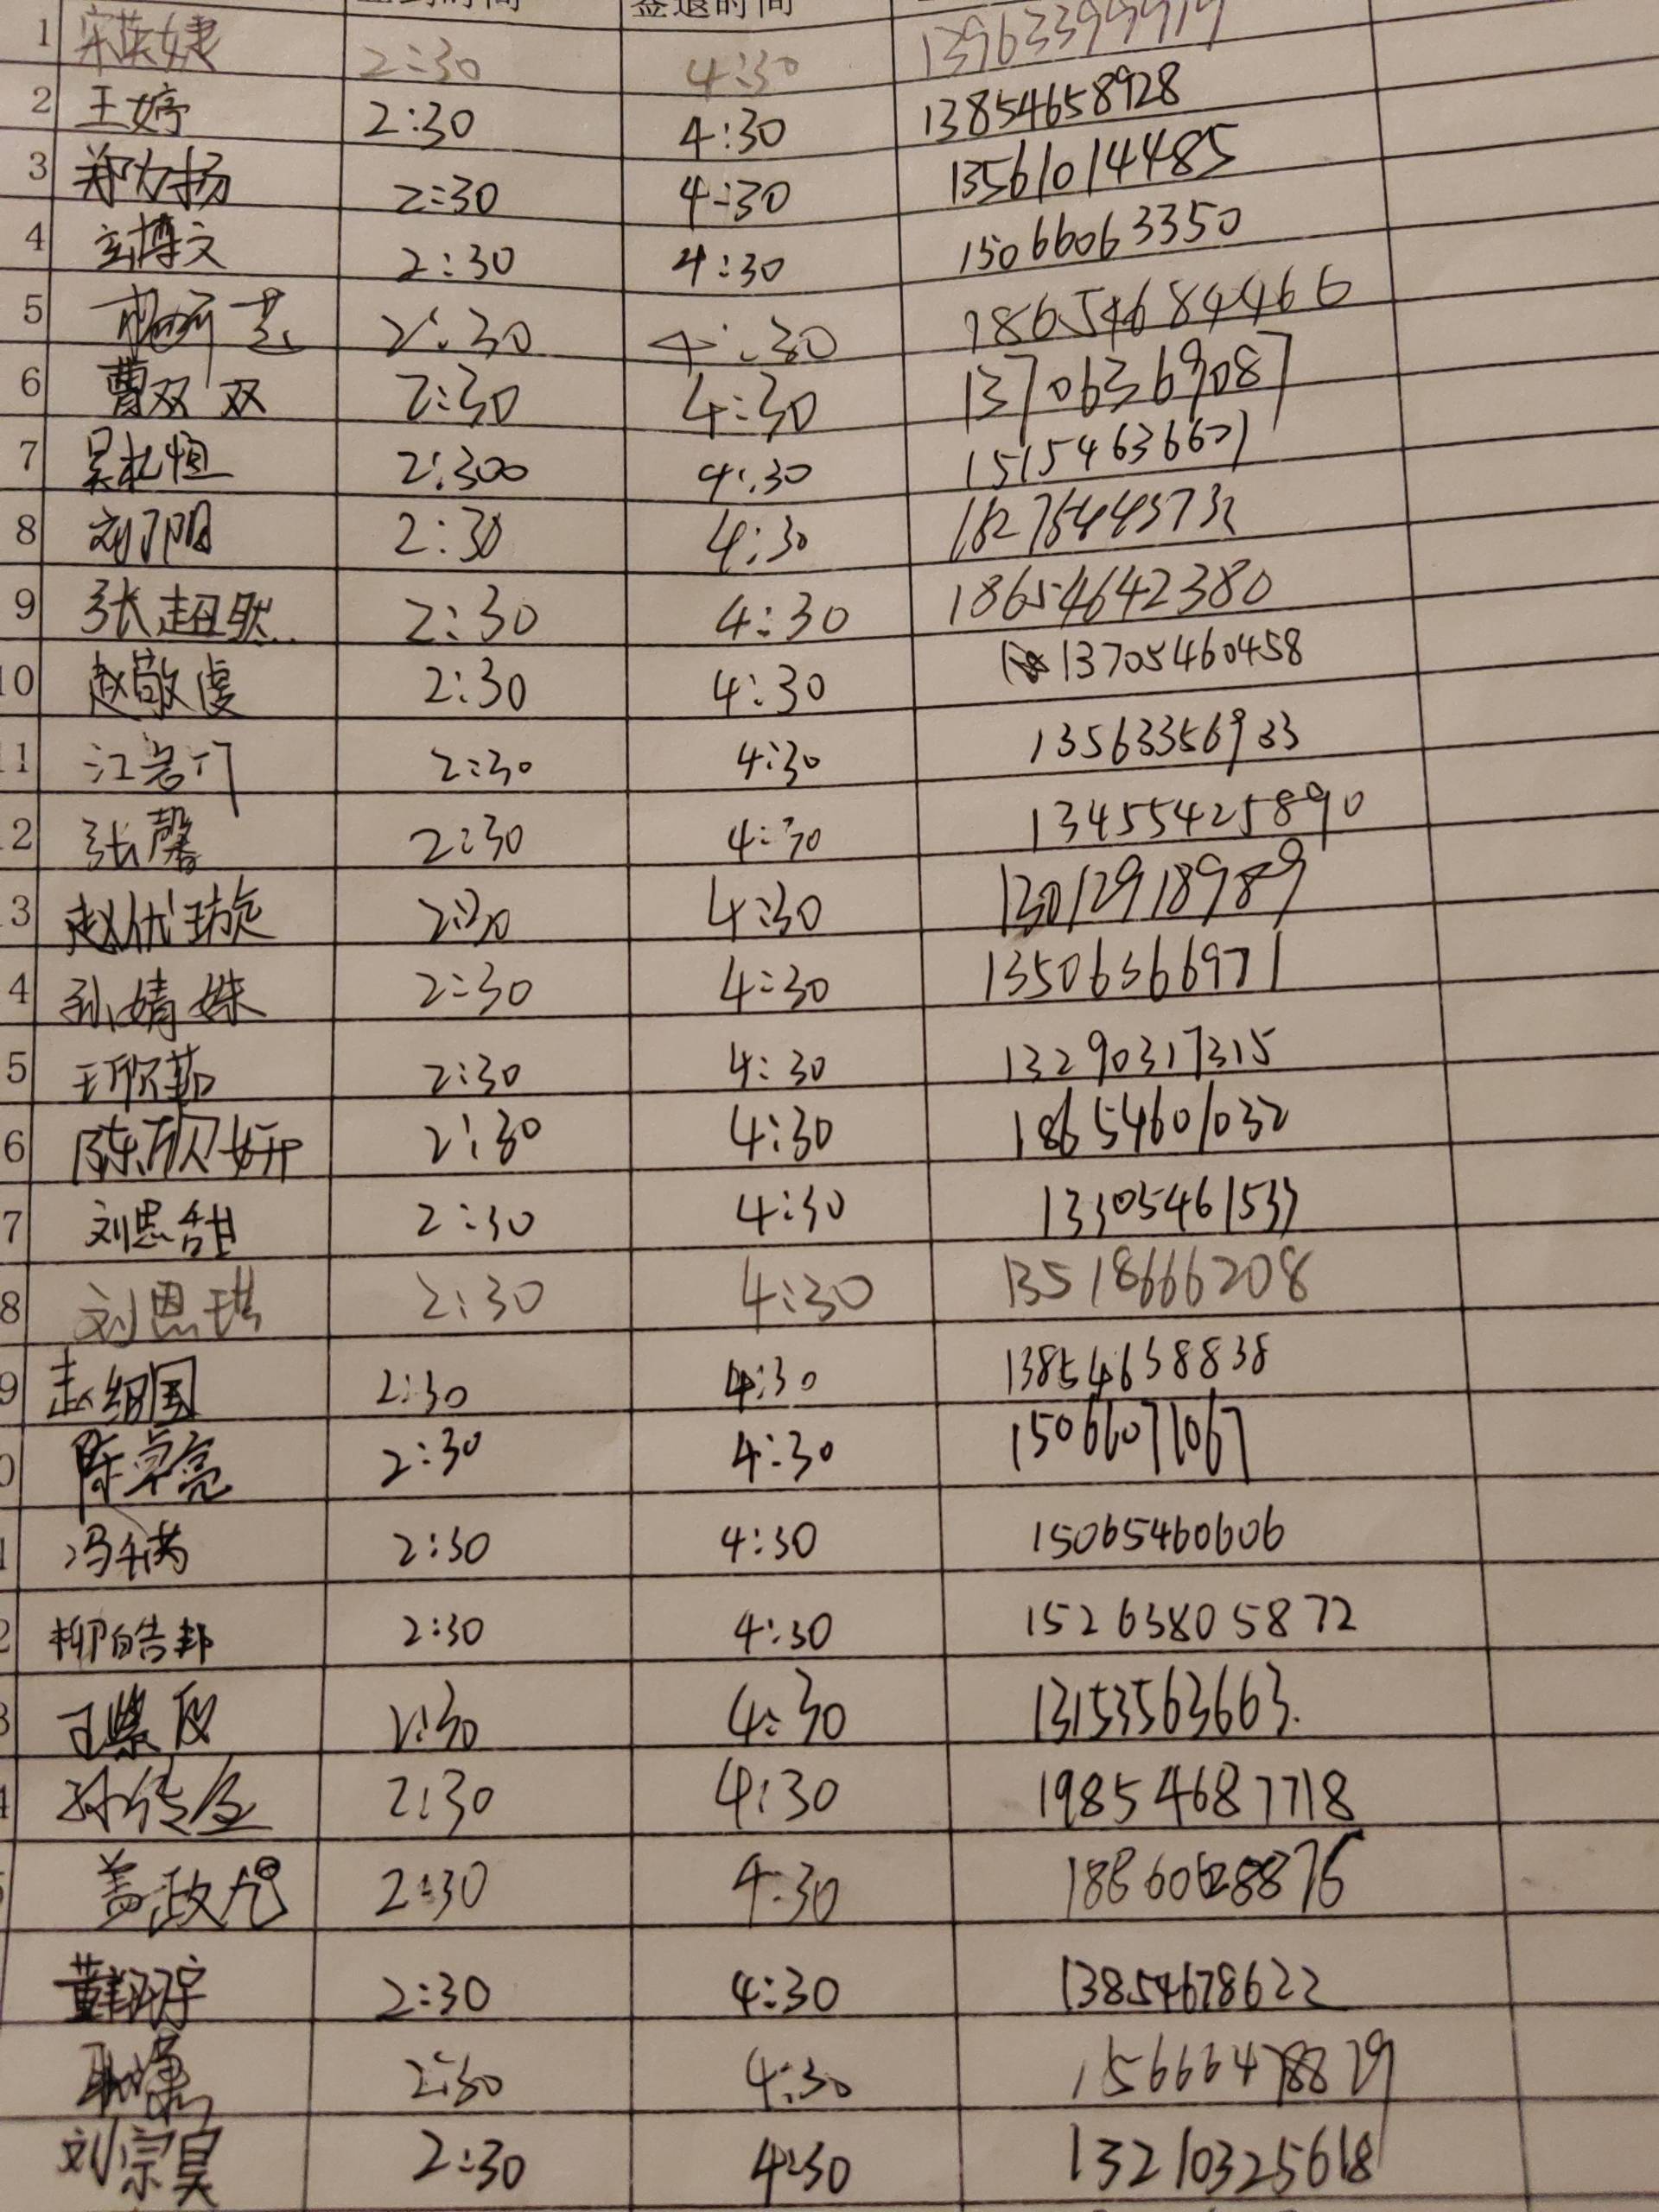 签退时间
1 宋英婕 2:30 4:30
2 王婷 2:30 4:30 13854658928
3 郑力扬 2:30 4:30 13561014485
4 玄博文 2:30 4:30 15066063350
5 2:30 4:30 18654684466
6 曹双双 2:30 4:30 13706369087
7 吴札恒 2:300 4:30
8 2:30 4:30
9 张超 2:30 4:30 18654642380
10 赵敬虔 2:30 4:30 13705460458
11 2:30 4:30 13563356933
2 张馨 2:30 4:30 13455425890
3 赵优璇 2:30 4:30 13012918989
4 孙婧姝 2:30 4:30 13506366971
5 王欣茹 2:30 4:30 13290317315
6 陈欣妍 2:30 4:30 18654601032
7 刘思甜 2:30 4:30 13305461533
8 刘恩琪 2:30 4:30 13518666208
9 2:30 4:30 13854638838
0 陈卓亮 2:30 4:30 15066071067
冯 2:30 4:30 15065460606
2 柳皓邦 2:30 4:30 15263805872
2:30 4:30 13153563663.
2:30 4:30 19854687718
盖政 2:30 4:30
董翔宇 2:30 4:30 13854678622
2:30 4:30 15666478829
刘宗昊 2:30 4:30 13210325618